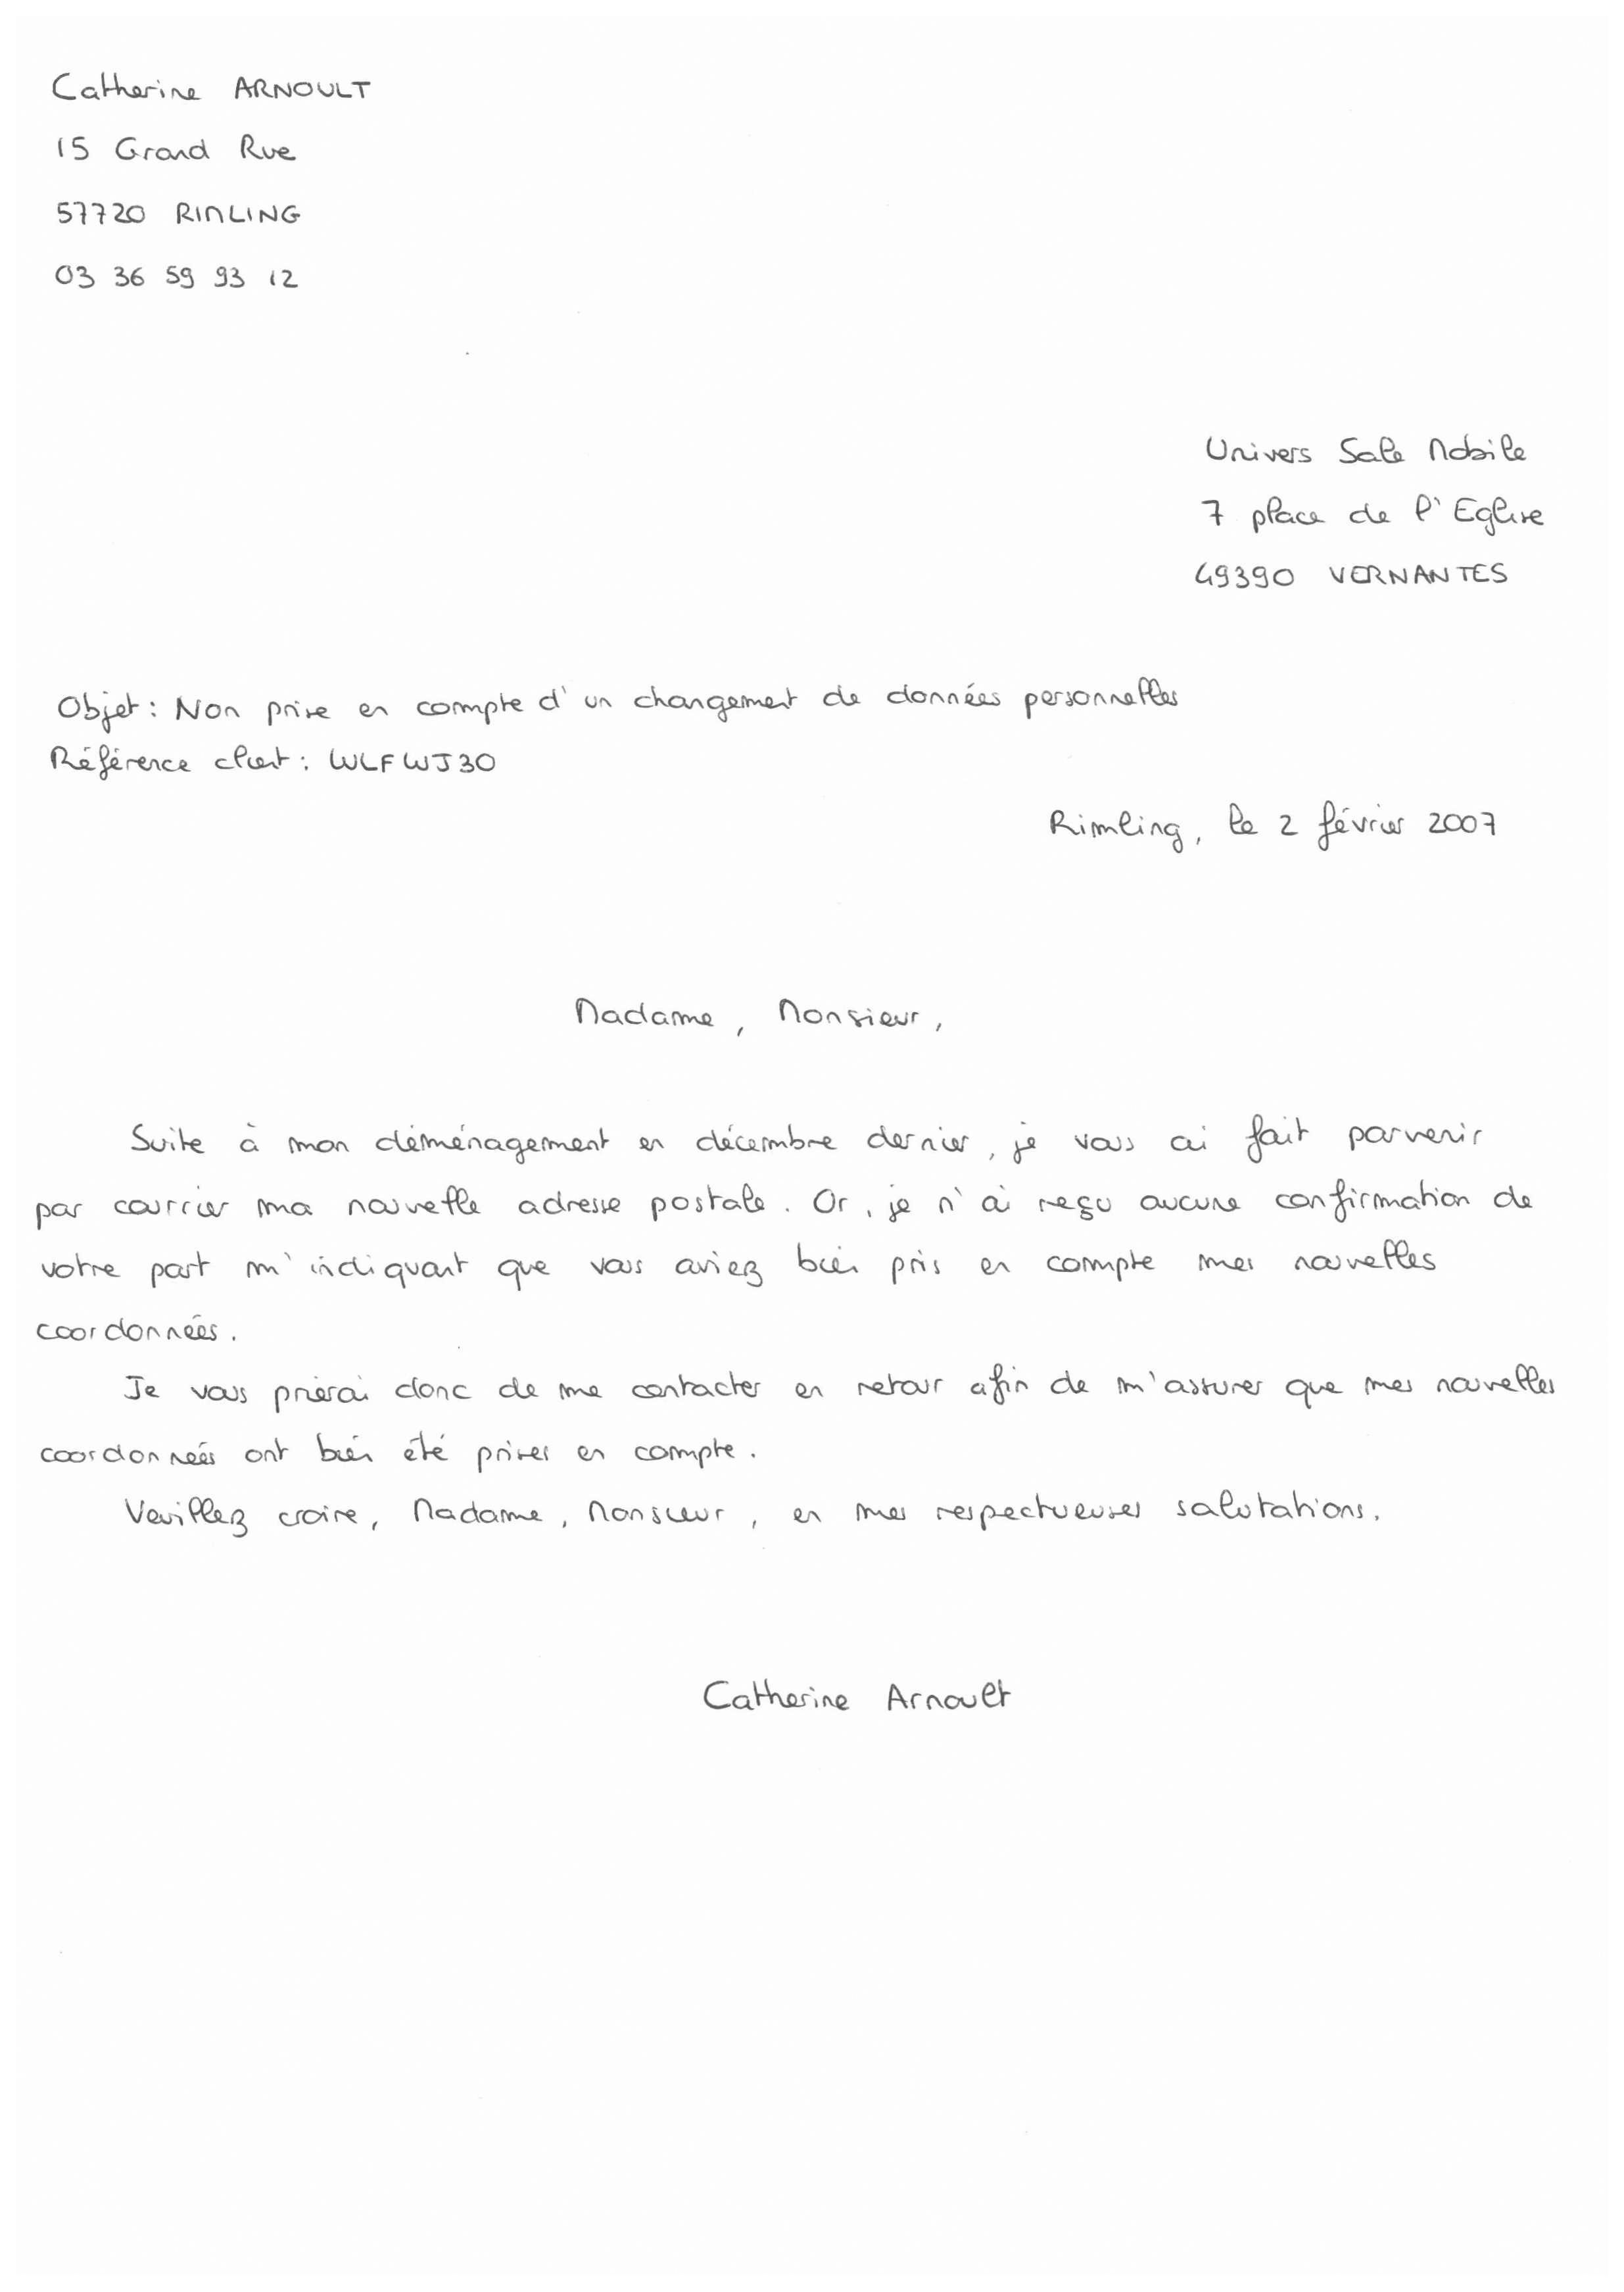 Catherine ARNOULT
15 Grand Rue
57720 RIMLING
03 36 59 93 12
Univers Sale Mobile
7 place de l'Eglise
49390 VERNANTES
Objet : Non prise en compte d'un changement de données personnelles
Référence client : WLFWJ30
Rimling, le 2 février 2007
Madame, Monsieur,
Suite à mon déménagement en décembre dernier, je vous ai fait parvenir
par courrier ma nouvelle adresse postale. Or, je n'ai reçu aucune confirmation de
votre part m'indiquant que vous aviez bien pris en compte mes nouvelles
coordonnées.
Je vous prierai donc de me contacter en retour afin de m'assurer que mes nouvelles
coordonnées ont bien été prises en compte.
Veuillez croire, Madame, Monsieur, en mes respectueuses salutations.
Catherine Arnoult